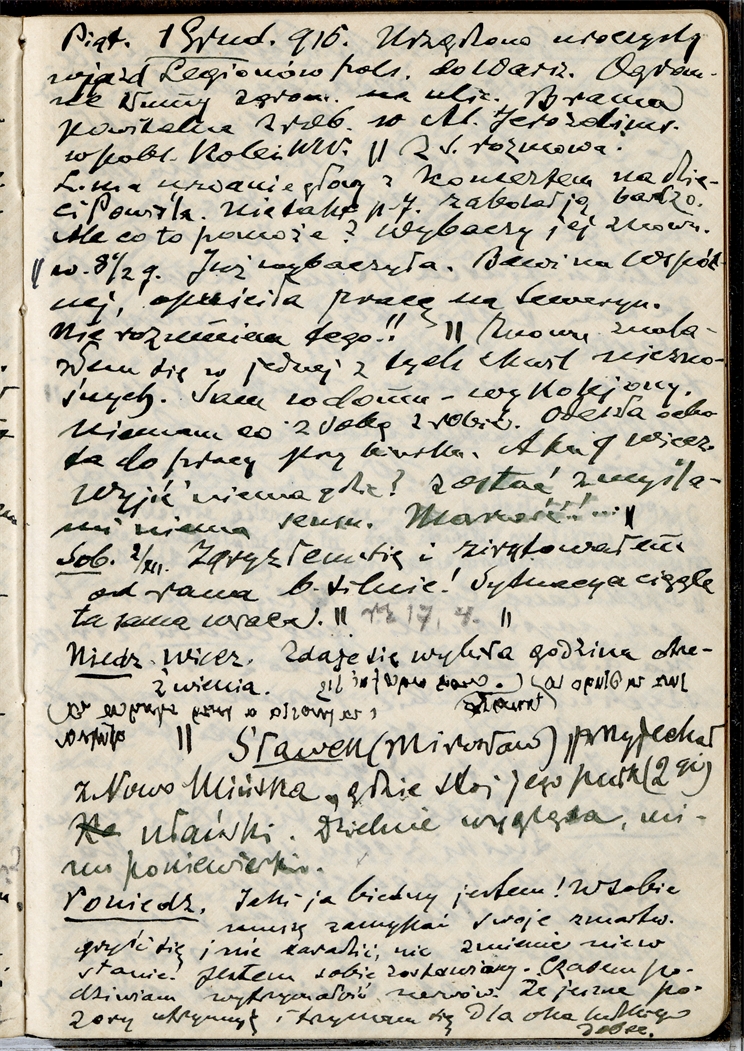 Piąt. 1 Grud. 916. Urządzono uroczysty
wjazd Legionów pols. do Warsz. Ogrom-
ne tłumy zgrom. na ulic. Brama
powitalna zrob. w Al. Jerozolims.
w pobl. Kolei WW. || Z S. rozmowa.
L. ma urwanie głowy z Koncertem na dzie-
ci Powiśla. Nie taką p. J. zabolało ją bardzo.
Ale co to pomoże? Wybaczy jej znowu.
|| w. 8½ g. Już wybaczyła. Bawi na Wspól-
nej, opuściła pracę na Seweryn.
Nie rozumiem tego!! || Znowu znala-
złem się w jednej z tych chwil niezno-
śnych. Sam w domu - wykąpiony.
Niemam co z sobą zrobić. Odeszła ocho-
ta do pracy przy biurku. A tu 9 wiecz.
Wyjść niema gdzie? Zostać z myśla-
mi niema sensu. Marność!... ||
Sob. 2/XII. Zgryzłem się i zirytowałem
od rana b. silnie! Sytuacya ciągle
ta sama wraca. || 17, 4. ||
Niedz. wiecz. Zdaje się wybiła godzina otrze-
źwienia.
|| Sławek (Mirosław) przyjechał
z Nowo Mińska, gdzie stoi jego pułk (2gi)
ułański. Dzielnie wygląda, mi-
mo poniewierki.
Poniedz. Jaki ja biedny jestem! W sobie
muszę zamykać swoje zmartw.
gryźć się i nie zaradzić, nie zmienić niew
stanie! Jestem sobie zostawiony. Czasem po-
dziwiam wytrzymałość nerwów. Że jeszcze po-
zory utrzymuję i trzymam się dla oka ludzkiego